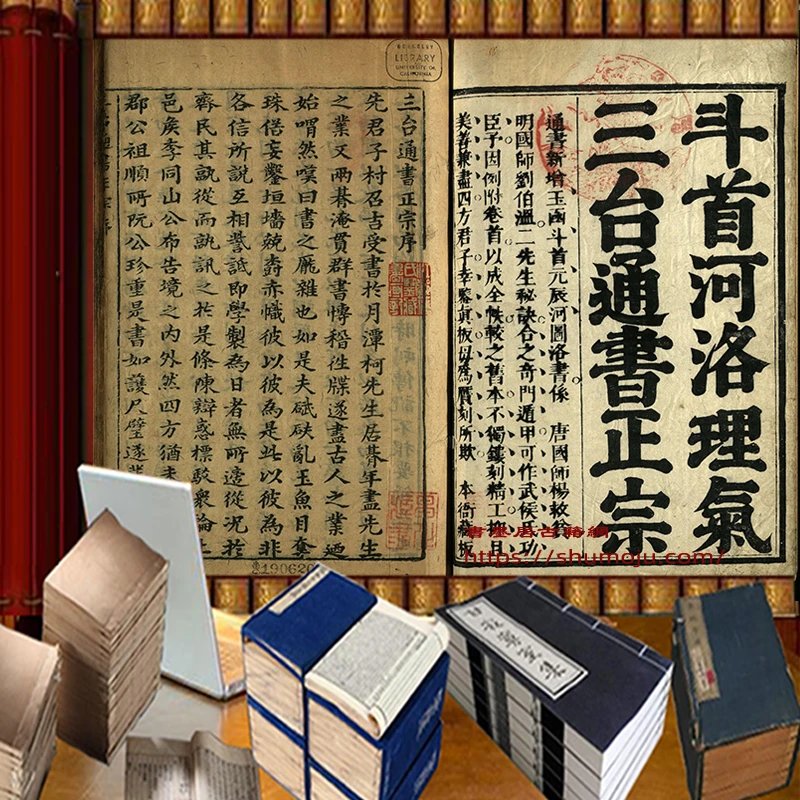 斗首河洛理氣
三台通書正宗
通書新增玉函斗首元辰河圖洛書係 唐國師楊救貧
明國師劉伯溫二先生秘訣合之奇門遁甲可作武侯氏功
臣予因例附卷首以成全帙較之舊本不獨鏤刻精工抑且
美善兼盡四方君子幸鑒真板毋為贋刻所欺 本衙藏板
三台通書正宗序
先君子村召吉受書於月潭柯先生居朞年盡先生
之業又兩朞淹貫群書慱稽徃牒遂盡古人之業迺
始喟然嘆曰書之厖雜也如是夫碔砆亂玉魚目奪
珠偣妄鑿垣墻兢壽赤幟彼以彼為是此以彼為非
各信所說互相訾詆即學製為日者無所適從况於
齊民其孰從而訊之於是條陳辯惑標駁衆論上
邑矦李同山公布告境之內外然四方猶未
郡公祖順所阮公珍重是書如護尺璧遂
BERKELEY
LIBRARY
UNIVERSITY OF
CALIFORNIA
190620
書墨居古籍網
https://shumoju.com/